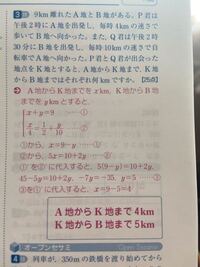 3 9km離れたA地とB地がある。P君は
午後2時にA地を出発し、毎時4kmの速さで
歩いてB地へ向かった。また、Q君は午後2時
30分にB地を出発し、毎時10kmの速さで自
転車でA地へ向かった。P君とQ君が出会った
地点をK地とすると、A地からK地まで、K地
からB地まではそれぞれ何kmですか。【25点】
A地からK地までをx km、K地からB地
までをy kmとすると、
x+y=9 ……①
x/4=1/2+y/10 ……②
①から、x=9-y ……①′
②から、5x=10+2y ……②′
①′を②′に代入すると、5(9-y)=10+2y,
45-5y=10+2y, -7y=-35, y=5 ……③
③を①′に代入すると、x=9-5=4
A地からK地まで4km
K地からB地まで5km
オープンセサミ
Open Sesame
4 列車が、350mの鉄橋を渡り始めてから